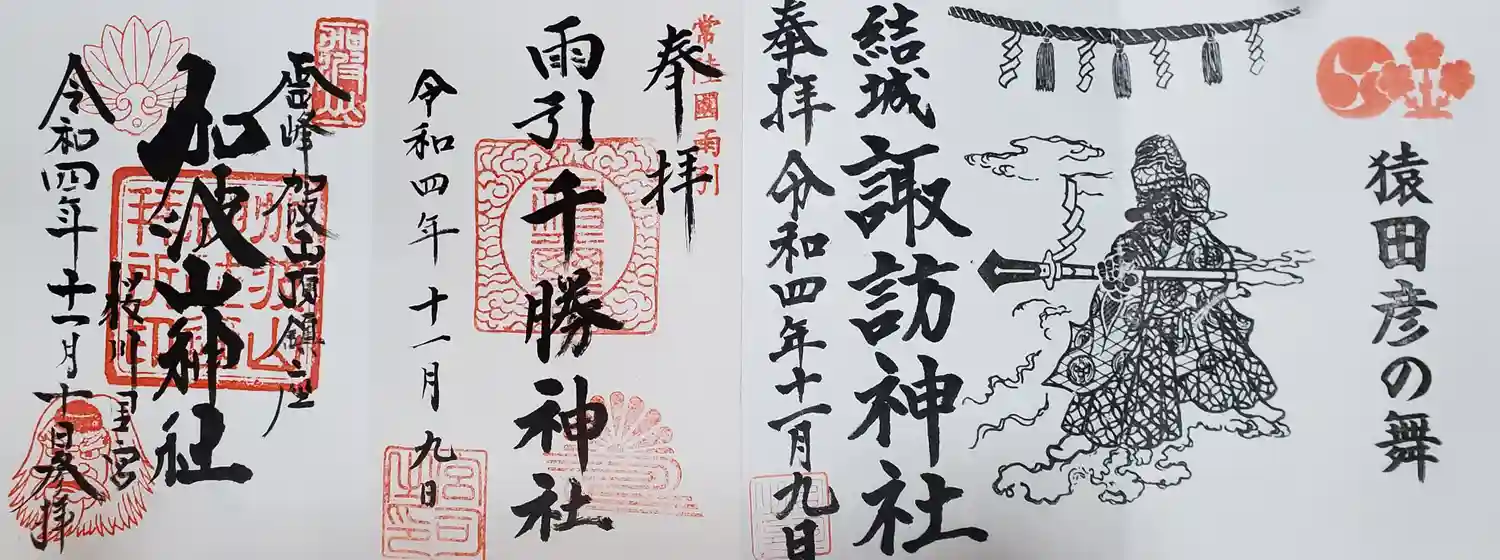 猿田彦の舞
結城 諏訪神社
奉拝 令和四年十一月九日
常陸國雨引
奉拝
雨引千勝神社
令和四年十一月九日
宮司之印
霊峰加波山頂鎮座
加波山
加波山神社
桜川 里宮
令和四年十一月十日参拝